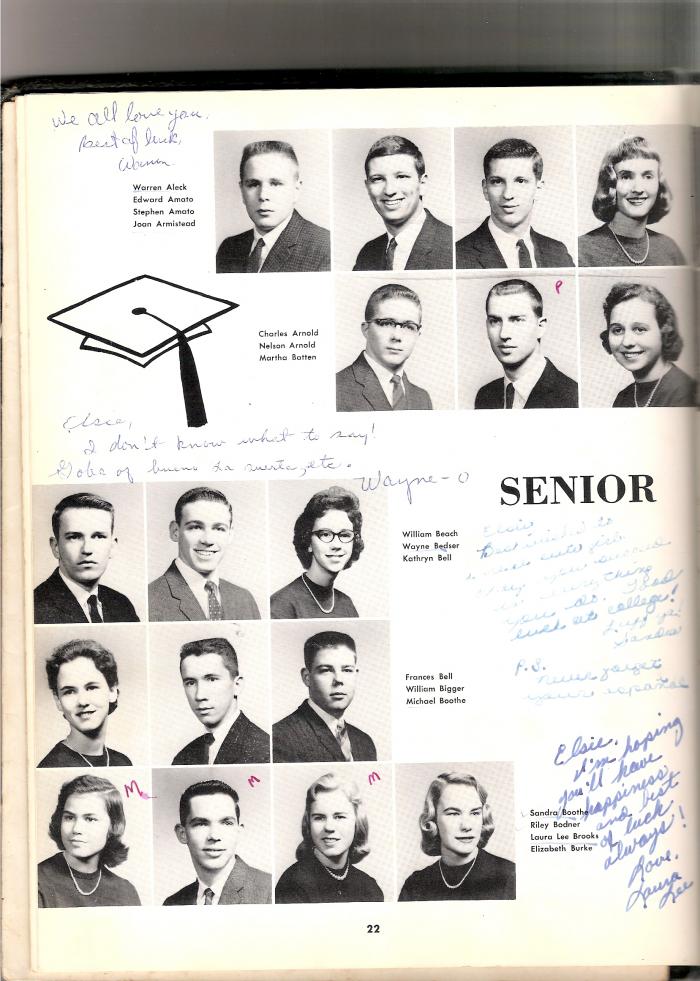 We all love you.
Best of luck,
Warren
Warren Aleck
Edward Amato
Stephen Amato
Joan Armistead
P
Charles Arnold
Nelson Arnold
Martha Batten
Elsie,
I don't know what to say!
of buena la suerte, etc.
Wayne-o
SENIOR
William Beach
Wayne Bedser
Kathryn Bell
Elsie
Best wishes to
cute girl.
you
in everything
you do. Good
luck at college!
Sandra
P.S.
never forget
your español
Frances Bell
William Bigger
Michael Boothe
Elsie,
I'm hoping
you'll have
happiness
and best
of luck
always!
Love,
Laura
Lee
M
M
M
Sandra Boothe
Riley Bodner
Laura Lee Brooks
Elizabeth Burke
22